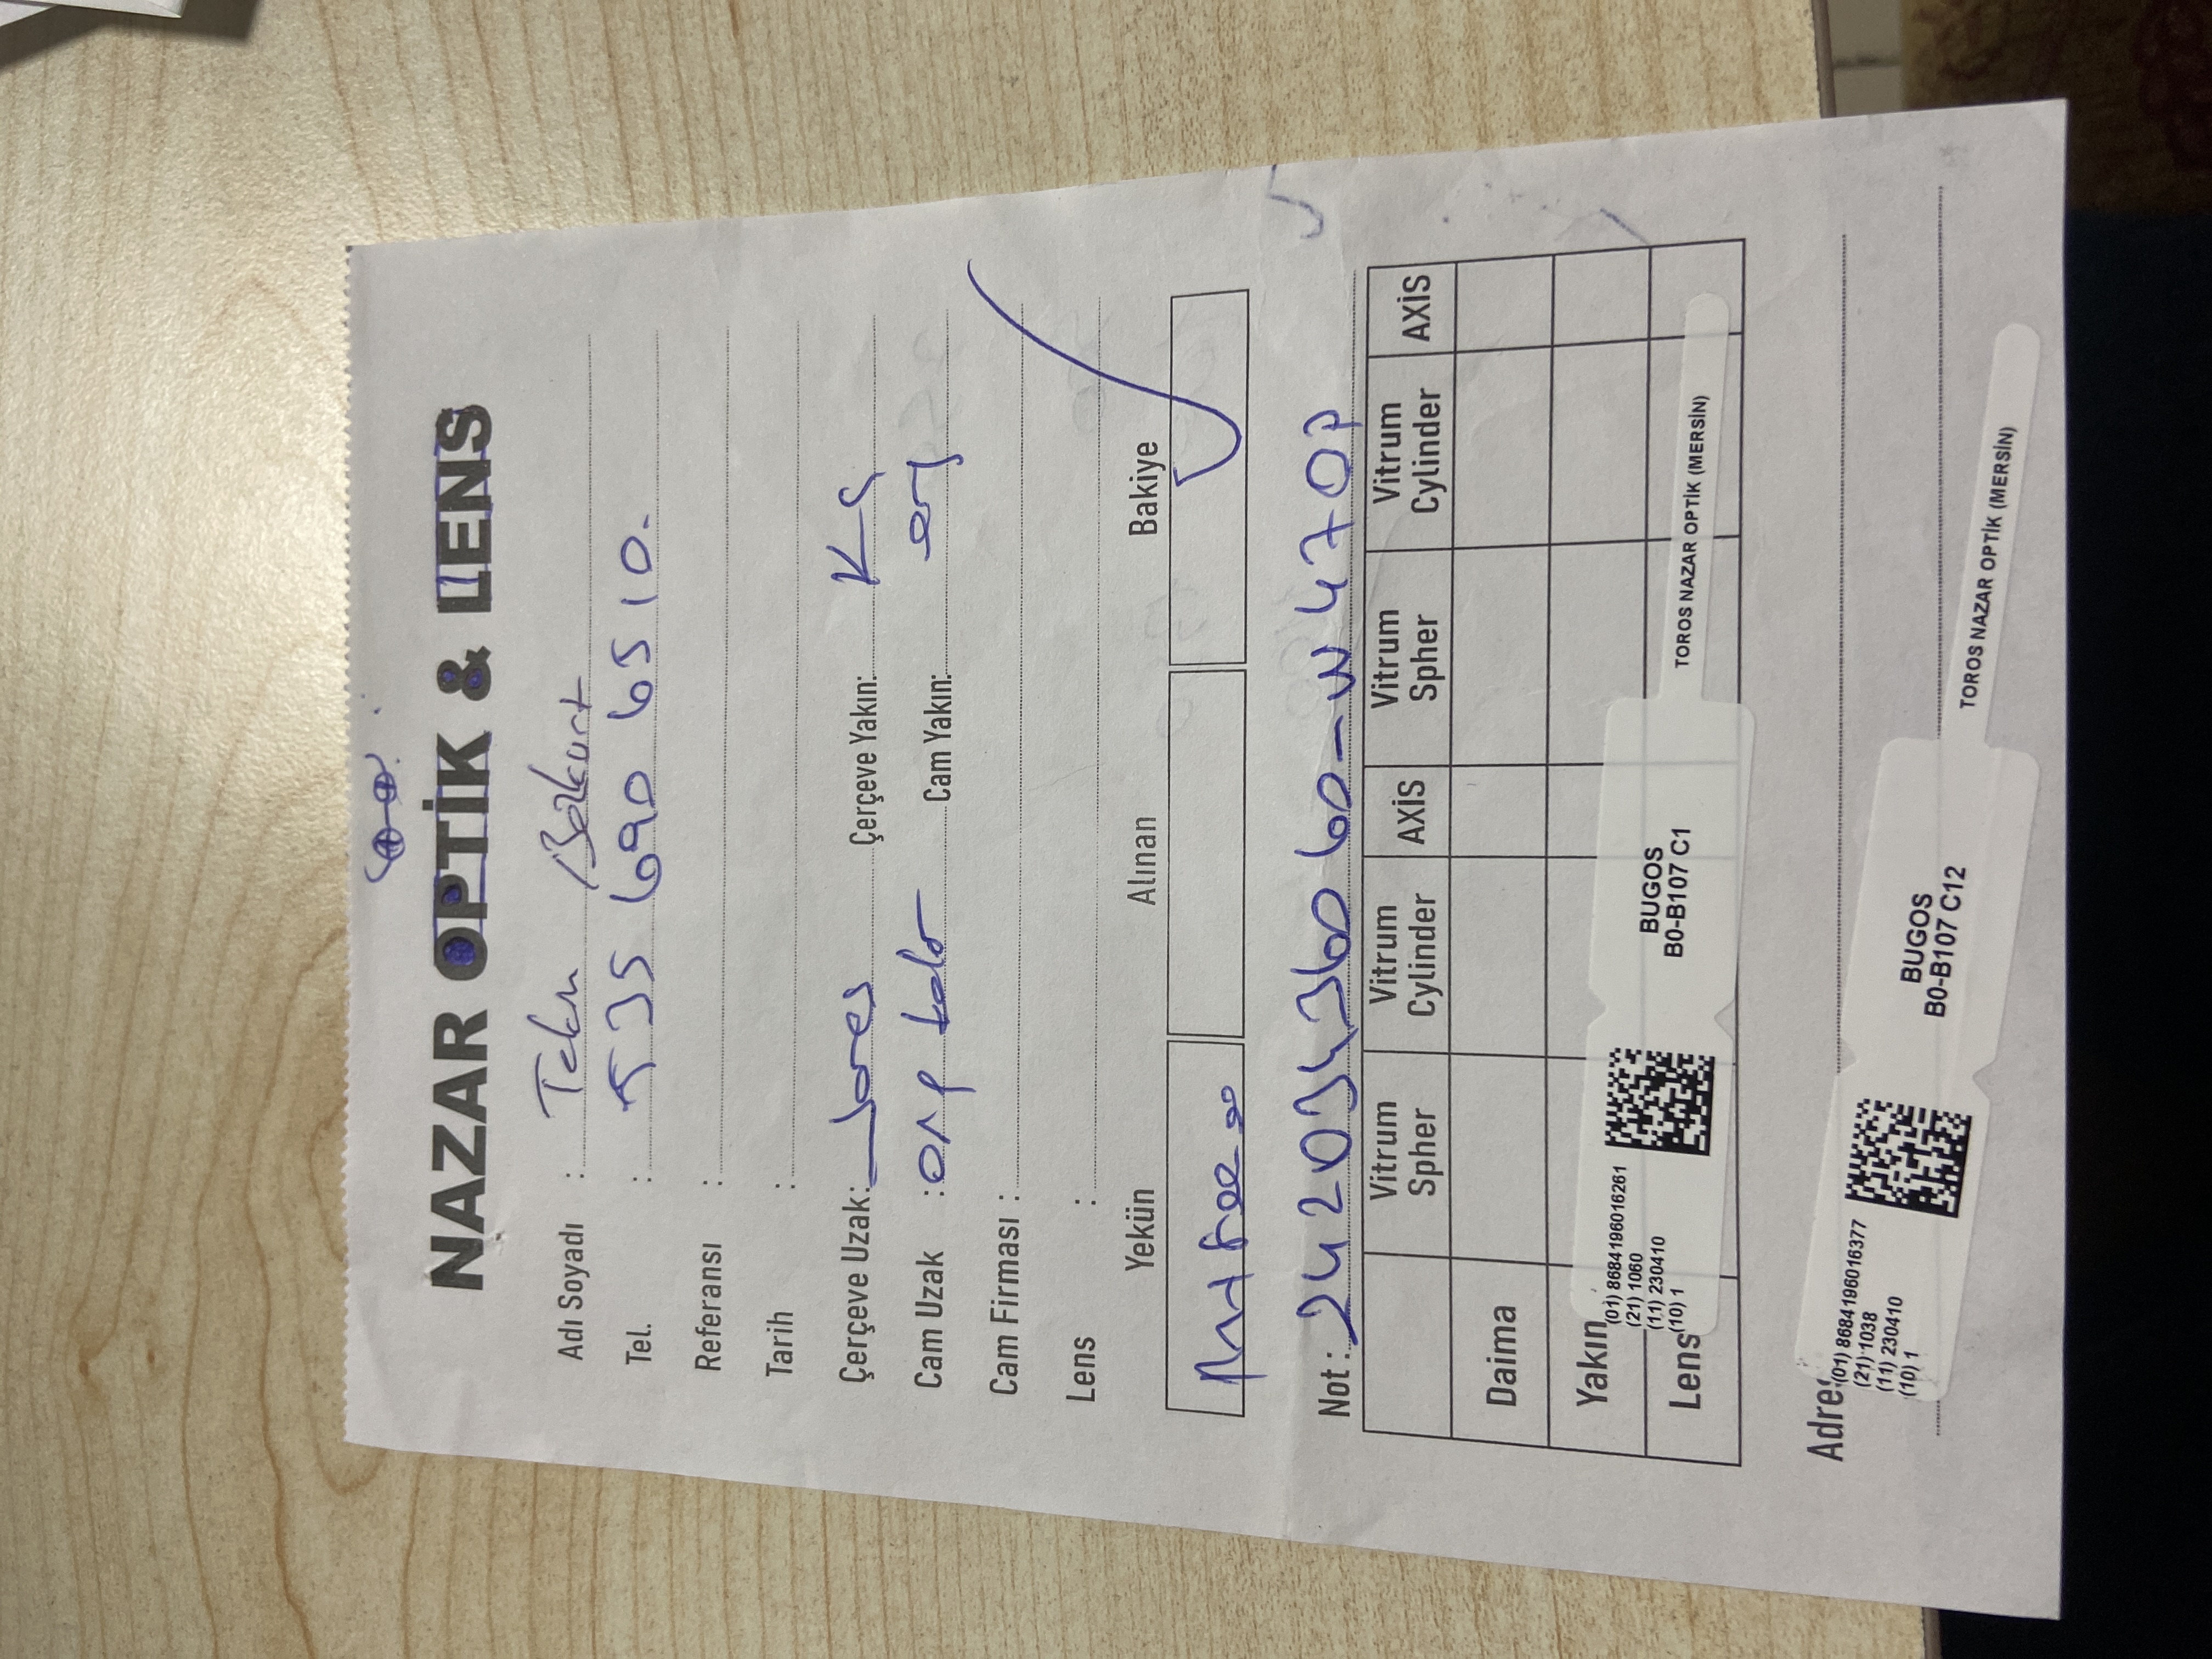 NAZAR OPTİK & LENS
Adı Soyadı : Tekin Bozkurt
Tel. : 535 690 6510.
Referansı :
Tarih :
Çerçeve Uzak: Çerçeve Yakın:
Cam Uzak : org Cam Yakın: org
Cam Firması :
Lens :
Yekün Alınan Bakiye
Not : 24203436060-W470P
Vitrum Spher Vitrum Cylinder AXİS Vitrum Spher Vitrum Cylinder AXİS
Daima
Yakın
Lens
(01) 8684196016261
(21) 1060
(11) 230410
(10) 1
BUGOS
B0-B107 C1
TOROS NAZAR OPTİK (MERSİN)
Adres
(01) 8684196016377
(21) 1038
(11) 230410
(10) 1
BUGOS
B0-B107 C12
TOROS NAZAR OPTİK (MERSİN)